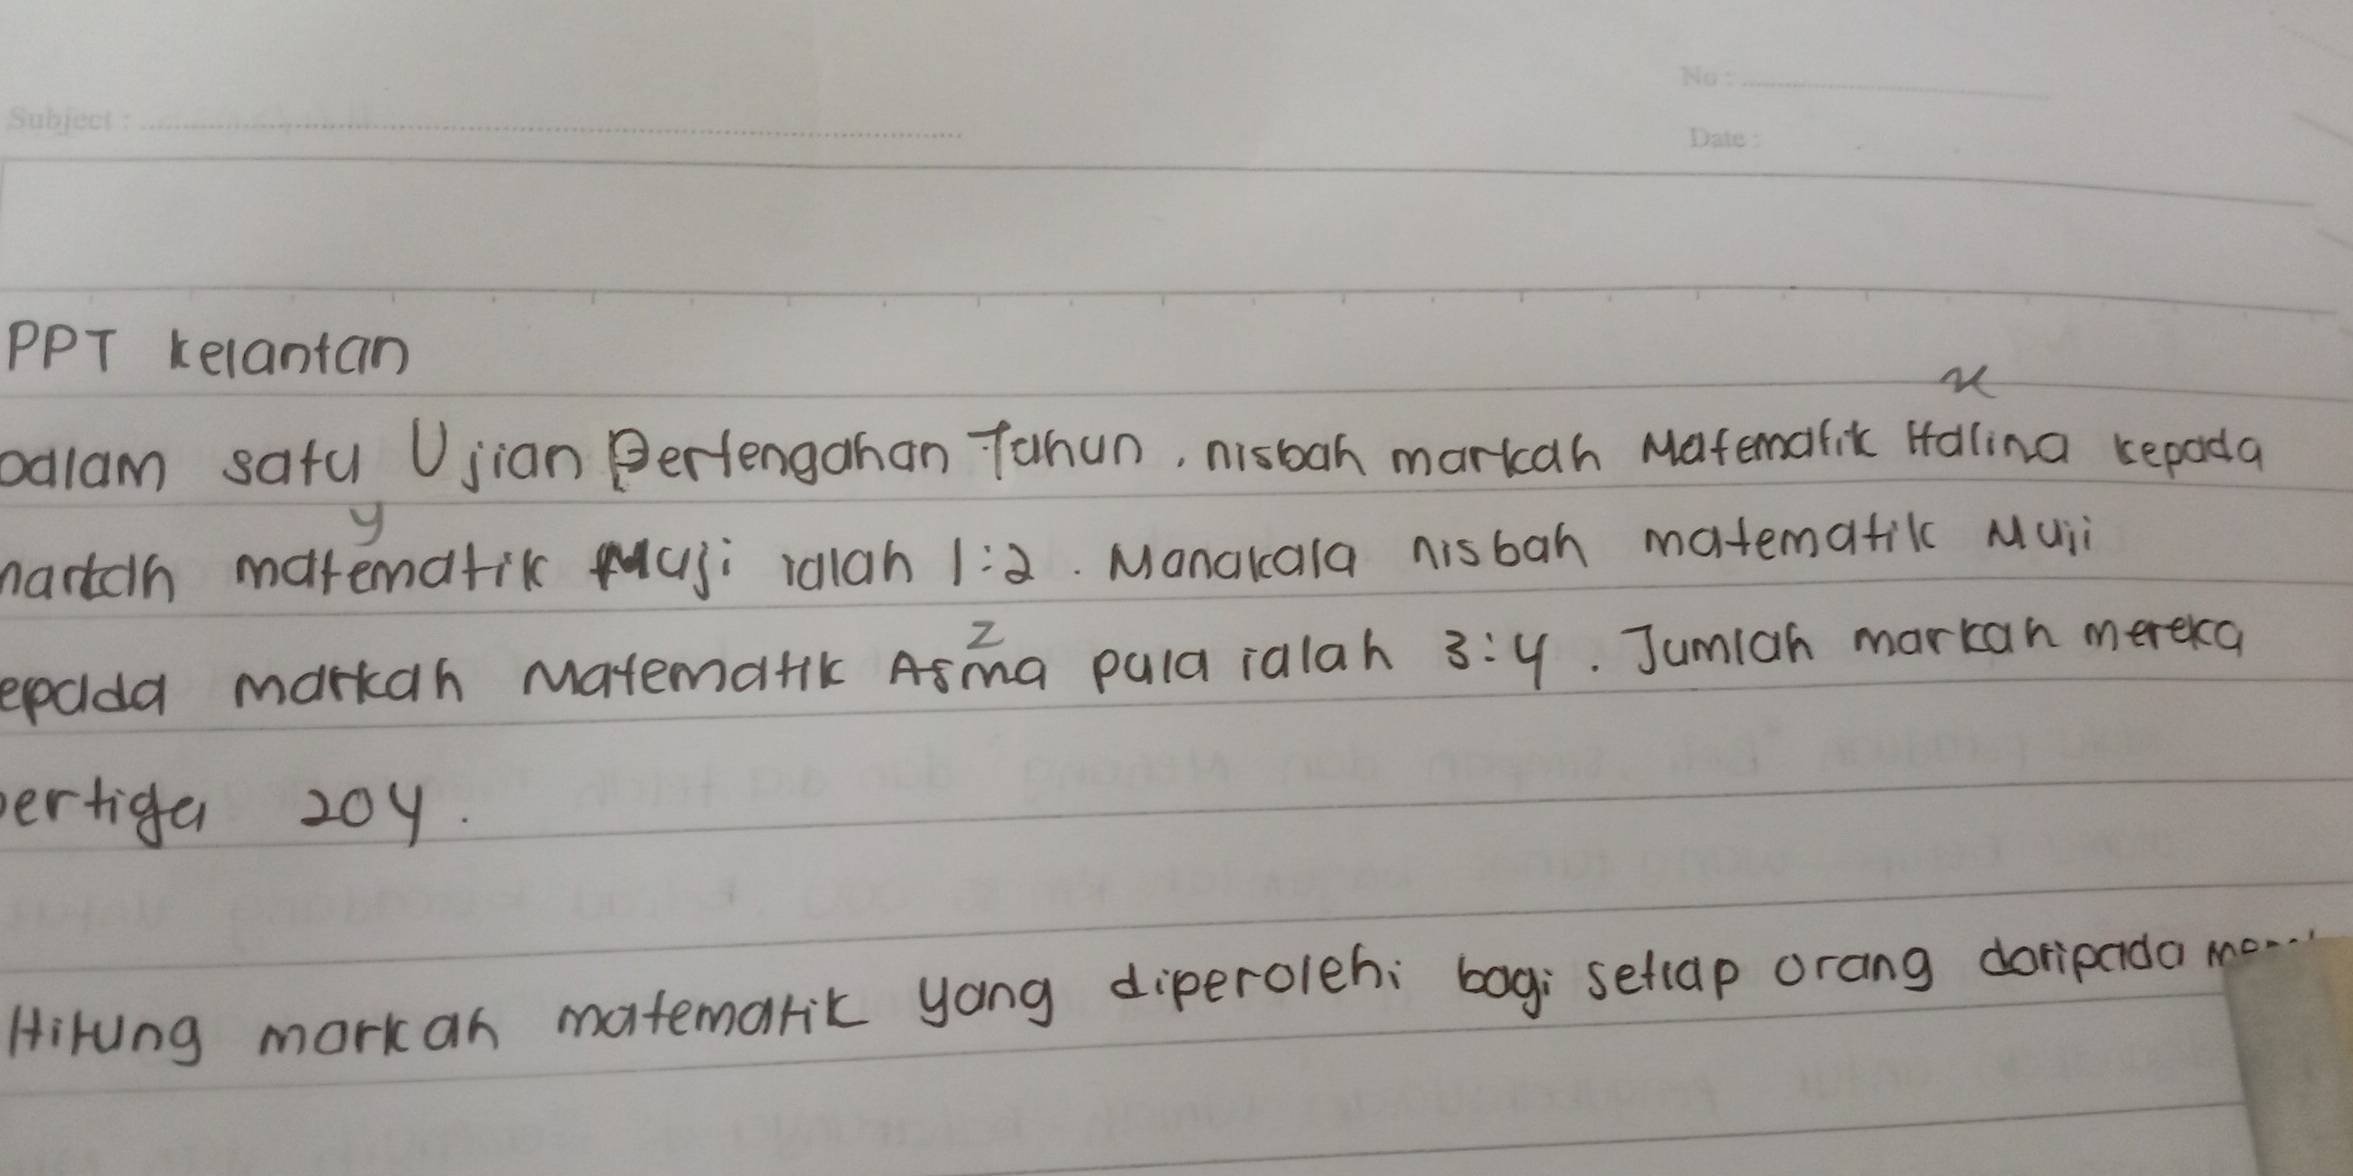 No :
Subject :
Date :
PPT kelantan
x
dalam satu Ujian Pertengahan Tahun, nisbah markah Matematik Halina kepada
y
markah matematik Muji ialah 1:2. Manakala nisbah matematik Muji
z
epada markah Matematik Asma pula ialah 3:4. Jumlah markah mereka
bertiga 204.
Hitung markah matematik yang diperolehi bagi setiap orang daripada